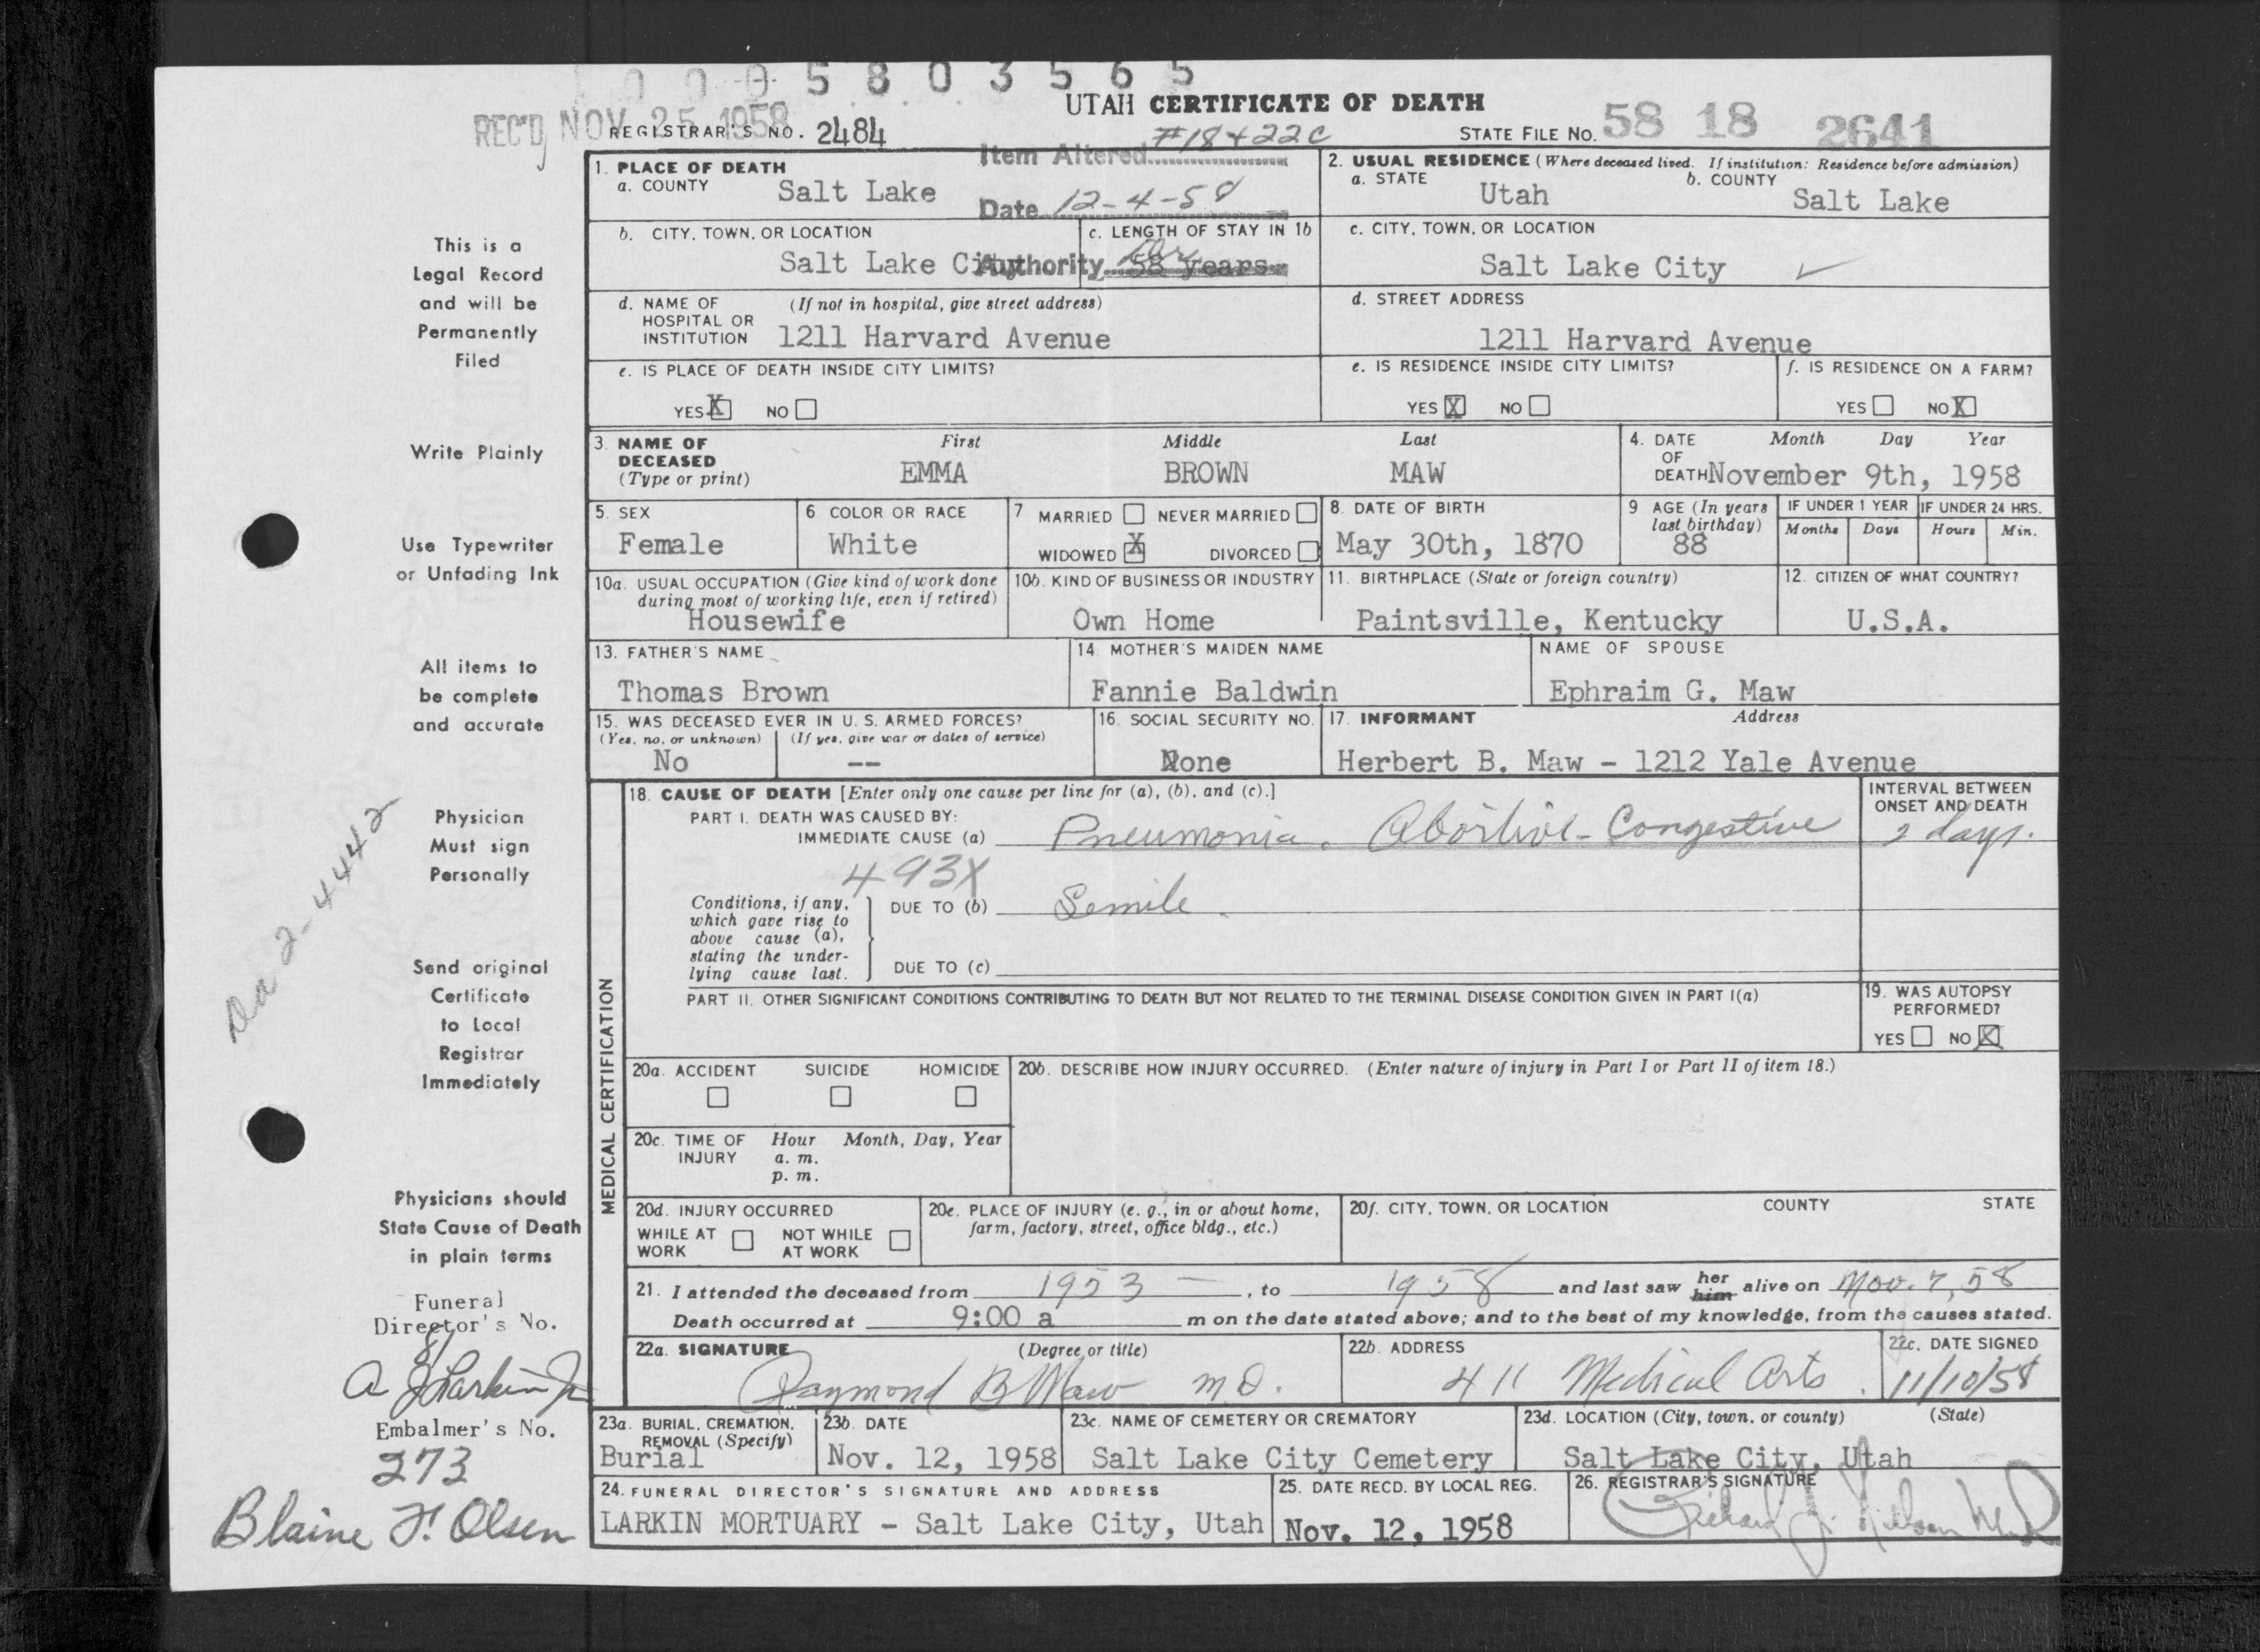 0 0 0 5 8 0 3 5 6 5
UTAH CERTIFICATE OF DEATH
REC'D NOV 25 1958
REGISTRAR'S NO. 2484
#18+22c
STATE FILE No. 58 18 2641
Item Altered
1. PLACE OF DEATH
a. COUNTY Salt Lake
Date 12-4-58
2. USUAL RESIDENCE (Where deceased lived. If institution: Residence before admission)
a. STATE Utah b. COUNTY Salt Lake
b. CITY, TOWN, OR LOCATION
Salt Lake City
c. LENGTH OF STAY IN 1b
Authority 58 years
c. CITY, TOWN, OR LOCATION
Salt Lake City
d. NAME OF HOSPITAL OR INSTITUTION (If not in hospital, give street address)
1211 Harvard Avenue
d. STREET ADDRESS
1211 Harvard Avenue
e. IS PLACE OF DEATH INSIDE CITY LIMITS?
YES X NO
e. IS RESIDENCE INSIDE CITY LIMITS?
YES X NO
f. IS RESIDENCE ON A FARM?
YES NO X
3. NAME OF DECEASED (Type or print)
First Middle Last
EMMA BROWN MAW
4. DATE OF DEATH Month Day Year
November 9th, 1958
5. SEX
Female
6. COLOR OR RACE
White
7 MARRIED NEVER MARRIED
WIDOWED X DIVORCED
8. DATE OF BIRTH
May 30th, 1870
9 AGE (In years last birthday)
88
IF UNDER 1 YEAR
Months Days
IF UNDER 24 HRS.
Hours Min.
10a. USUAL OCCUPATION (Give kind of work done during most of working life, even if retired)
Housewife
10b. KIND OF BUSINESS OR INDUSTRY
Own Home
11. BIRTHPLACE (State or foreign country)
Paintsville, Kentucky
12. CITIZEN OF WHAT COUNTRY?
U.S.A.
13. FATHER'S NAME
Thomas Brown
14. MOTHER'S MAIDEN NAME
Fannie Baldwin
NAME OF SPOUSE
Ephraim G. Maw
15. WAS DECEASED EVER IN U. S. ARMED FORCES?
(Yes, no, or unknown) (If yes, give war or dates of service)
No --
16. SOCIAL SECURITY NO.
None
17. INFORMANT Address
Herbert B. Maw - 1212 Yale Avenue
MEDICAL CERTIFICATION
18. CAUSE OF DEATH [Enter only one cause per line for (a), (b), and (c).]
INTERVAL BETWEEN ONSET AND DEATH
PART I. DEATH WAS CAUSED BY:
IMMEDIATE CAUSE (a) Pneumonia. Abortive - Congestive 2 days.
493X
Conditions, if any, which gave rise to above cause (a), stating the underlying cause last.
DUE TO (b) Senile.
DUE TO (c)
PART II. OTHER SIGNIFICANT CONDITIONS CONTRIBUTING TO DEATH BUT NOT RELATED TO THE TERMINAL DISEASE CONDITION GIVEN IN PART I(a)
19. WAS AUTOPSY PERFORMED?
YES NO X
20a. ACCIDENT SUICIDE HOMICIDE
20b. DESCRIBE HOW INJURY OCCURRED. (Enter nature of injury in Part I or Part II of item 18.)
20c. TIME OF INJURY Hour Month, Day, Year
a. m.
p. m.
20d. INJURY OCCURRED
WHILE AT WORK NOT WHILE AT WORK
20e. PLACE OF INJURY (e. g., in or about home, farm, factory, street, office bldg., etc.)
20f. CITY, TOWN, OR LOCATION COUNTY STATE
21. I attended the deceased from 1953 - , to 1958 and last saw her him alive on Nov. 7, 58
Death occurred at 9:00 a m on the date stated above; and to the best of my knowledge, from the causes stated.
22a. SIGNATURE (Degree or title)
Raymond B Maw M.D.
22b. ADDRESS
411 Medical Arts.
22c. DATE SIGNED
11/10/58
23a. BURIAL, CREMATION, REMOVAL (Specify)
Burial
23b. DATE
Nov. 12, 1958
23c. NAME OF CEMETERY OR CREMATORY
Salt Lake City Cemetery
23d. LOCATION (City, town, or county) (State)
Salt Lake City, Utah
24. FUNERAL DIRECTOR'S SIGNATURE AND ADDRESS
LARKIN MORTUARY - Salt Lake City, Utah
25. DATE RECD. BY LOCAL REG.
Nov. 12, 1958
26. REGISTRAR'S SIGNATURE
This is a
Legal Record
and will be
Permanently
Filed
Write Plainly
Use Typewriter
or Unfading Ink
All items to
be complete
and accurate
Physician
Must sign
Personally
2-4442
Send original
Certificate
to Local
Registrar
Immediately
Physicians should
State Cause of Death
in plain terms
Funeral
Director's No.
81
A J Larkin Jr
Embalmer's No.
273
Blaine F. Olsen